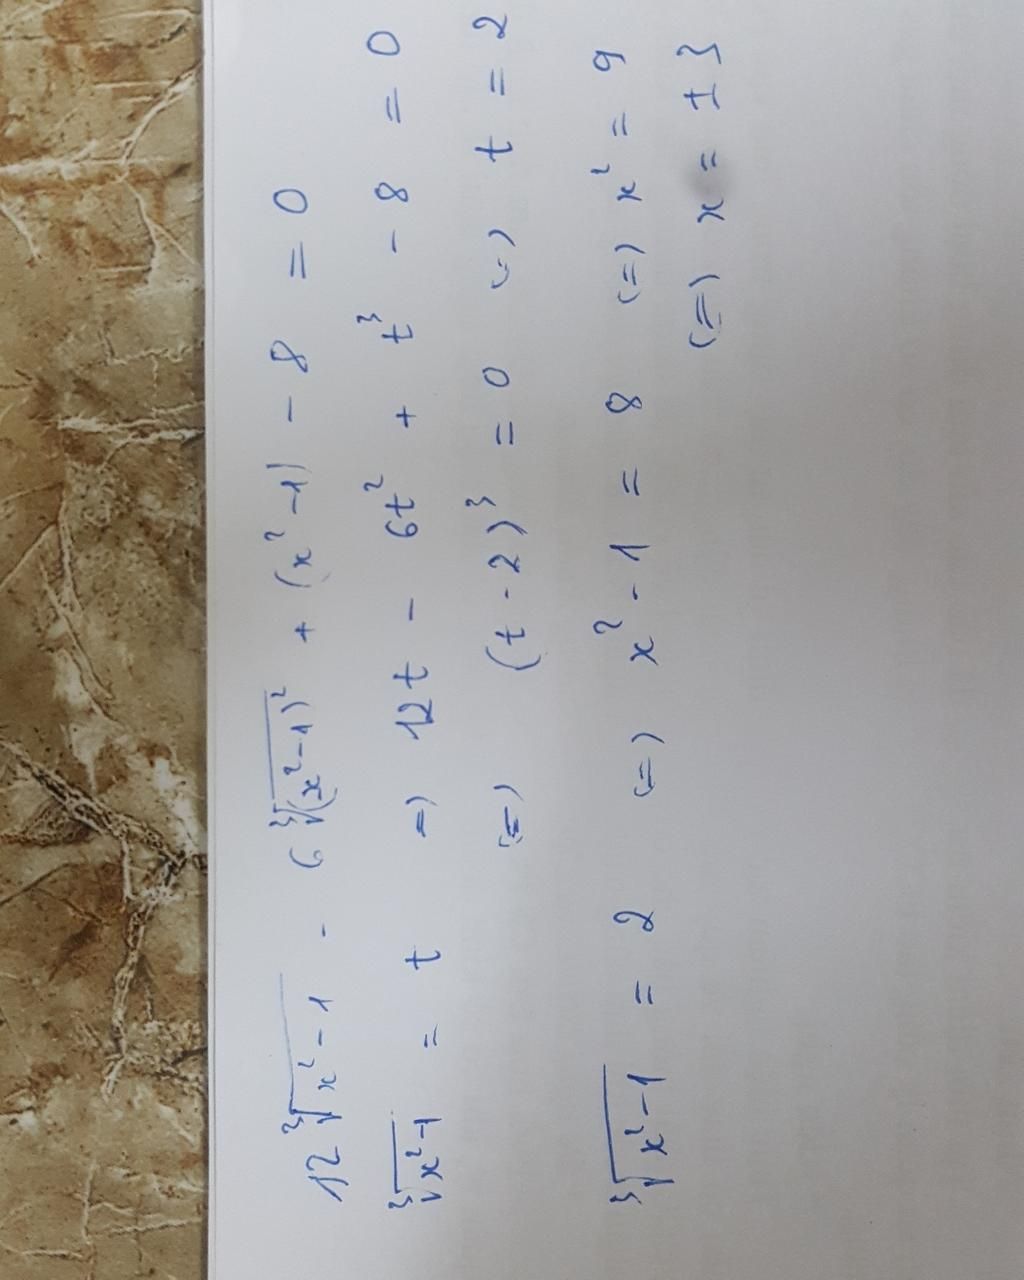 12∛x²-1 - 6∛(x²-1)² + (x²-1) - 8 = 0
∛x²-1 = t => 12t - 6t² + t³ - 8 = 0
(=) (t-2)³ = 0 (=) t = 2
∛x²-1 = 2 (=) x²-1 = 8 (=) x² = 9
(=) x = ±3